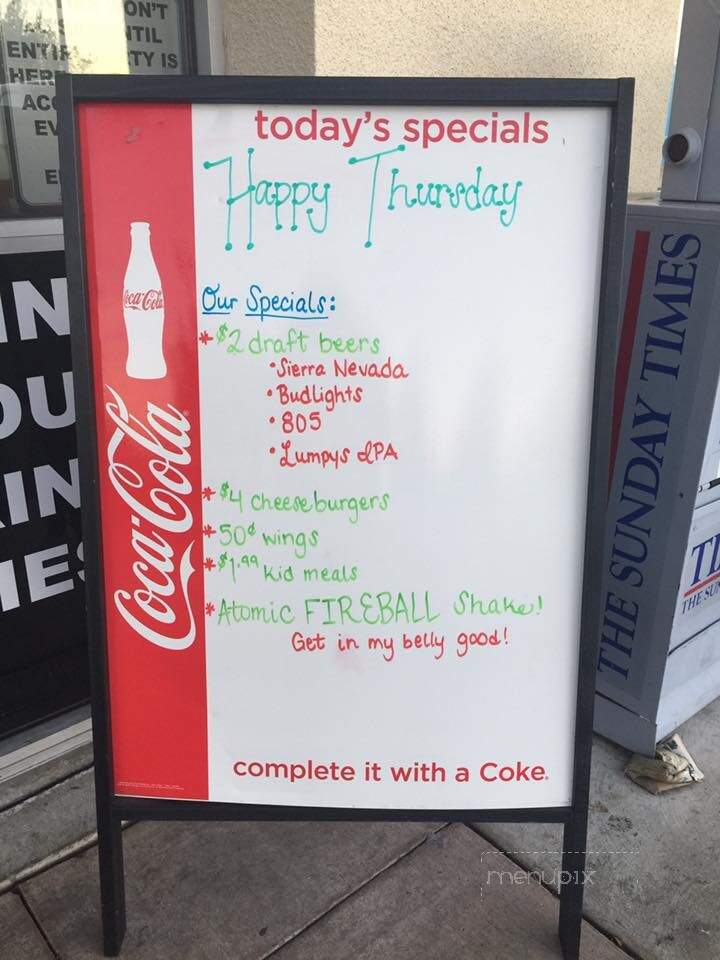 ON'T
NTIL
ENTIR TY IS
HER
ACC
EV
IN
OU
IN
IES
today's specials
Happy Thursday
Our Specials:
*$2 draft beers
•Sierra Nevada
•Budlights
•805
•Lumpys IPA
*$4 cheeseburgers
*50¢ wings
*$1.99 kid meals
*Atomic FIREBALL Shake!
Get in my belly good!
complete it with a Coke.
Coca-Cola
Coca-Cola
THE SUNDAY TIMES
TI
THE SUN
menupix